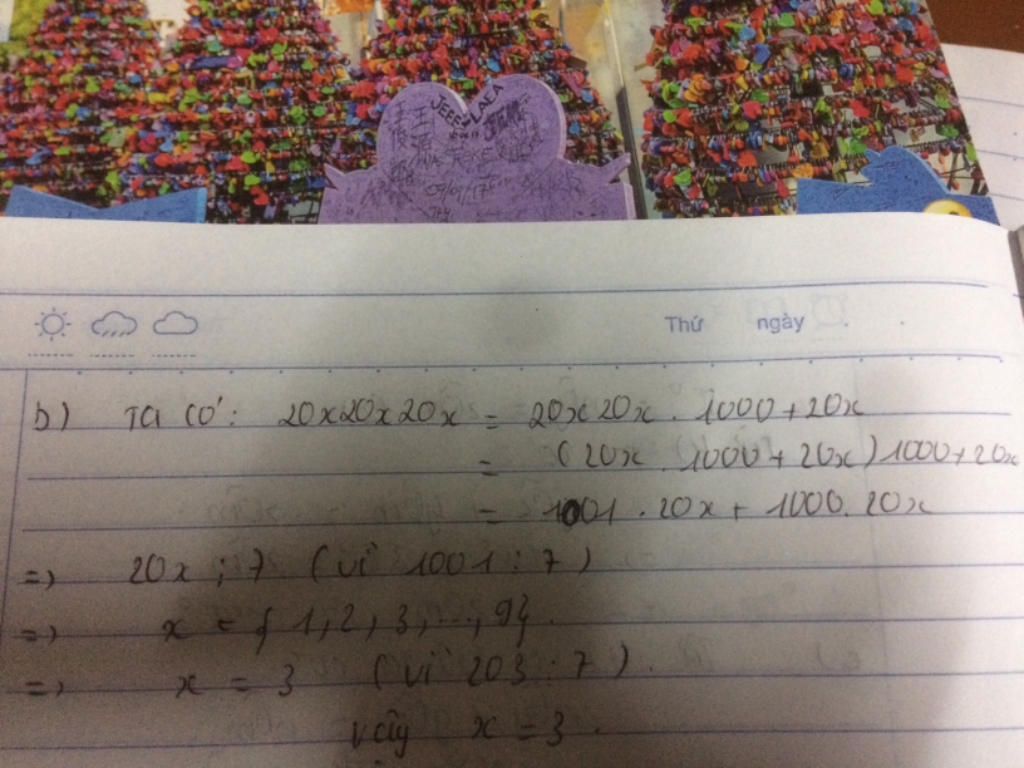 JEEE LALA
09/09/17
Thứ ngày
b) Ta có: 20x20x20x = 20x20x . 1000 + 20x
= (20x . 1000 + 20x) 1000 + 20x
= 1001 . 20x + 1000 . 20x
=> 20x ⋮ 7 (vì 1001 ⋮ 7)
=> x = { 1, 2, 3, ..., 9}.
=> x = 3 (vì 203 ⋮ 7).
vậy x = 3.